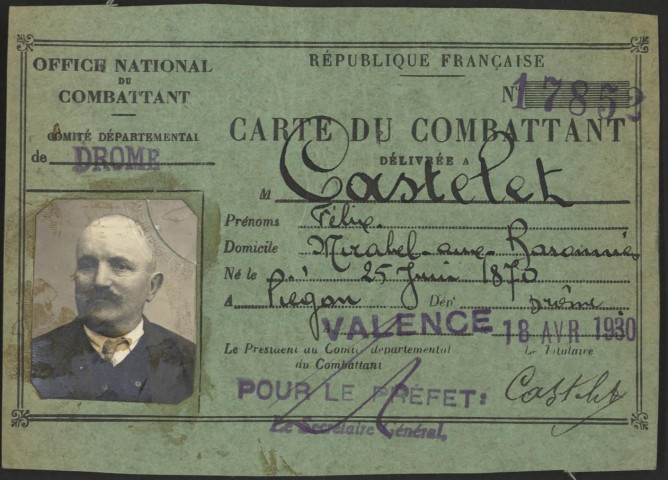 OFFICE NATIONAL
DU
COMBATTANT
COMITÉ DÉPARTEMENTAL
de DROME
RÉPUBLIQUE FRANÇAISE
N° 17853
CARTE DU COMBATTANT
DÉLIVRÉE A
M Castelet
Prénoms Félix
Domicile Mirabel-aux-Baronnies
Né le 25 Juin 1870
A Piégon Dép' Drôme
VALENCE 18 AVR 1930
Le Président du Comité départemental
du Combattant
Le Titulaire
POUR LE PRÉFET:
Le Secrétaire Général,
Castelet